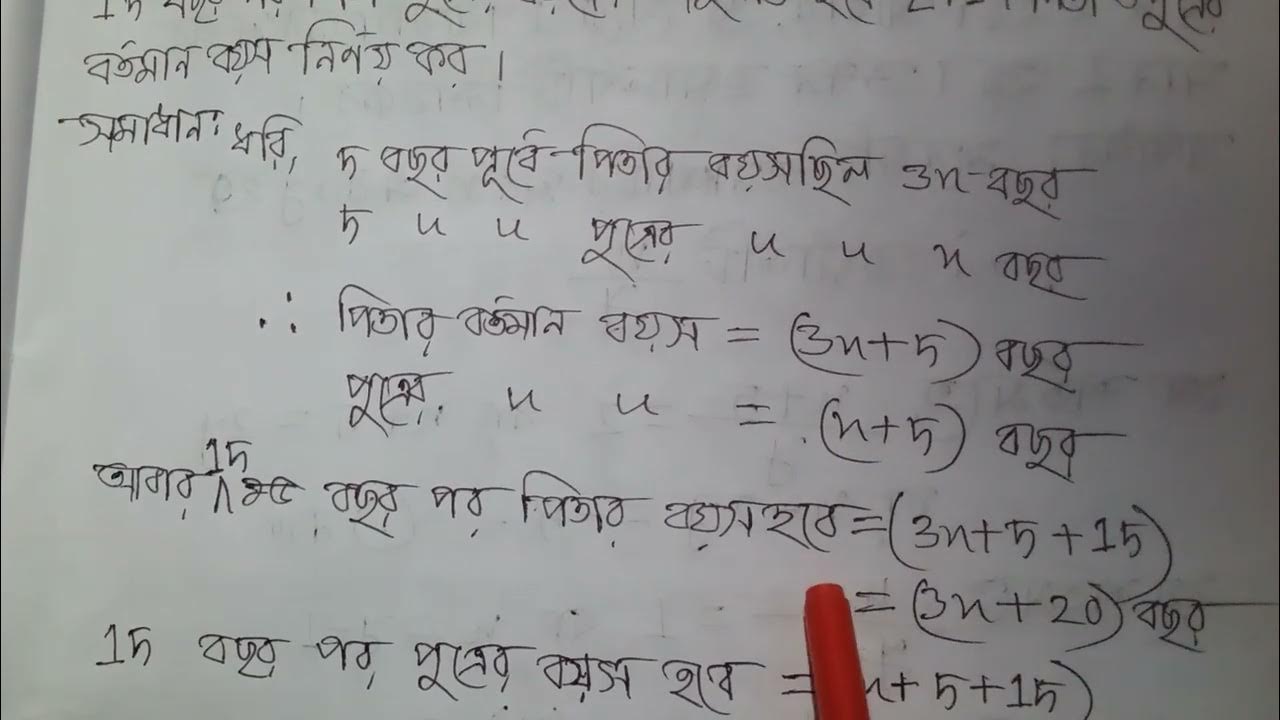 15 বছর পর
বর্তমান বয়স নির্ণয় কর।
সমাধান: ধরি, 5 বছর পূর্বে পিতার বয়স ছিল 3x বছর
5 " " পুত্রের " " x বছর
∴ পিতার বর্তমান বয়স = (3x+5) বছর
পুত্রের " " = (x+5) বছর
আবার 15 বছর পর পিতার বয়স হবে = (3x+5+15)
= (3x+20) বছর
15 বছর পর পুত্রের বয়স হবে = x+5+15)